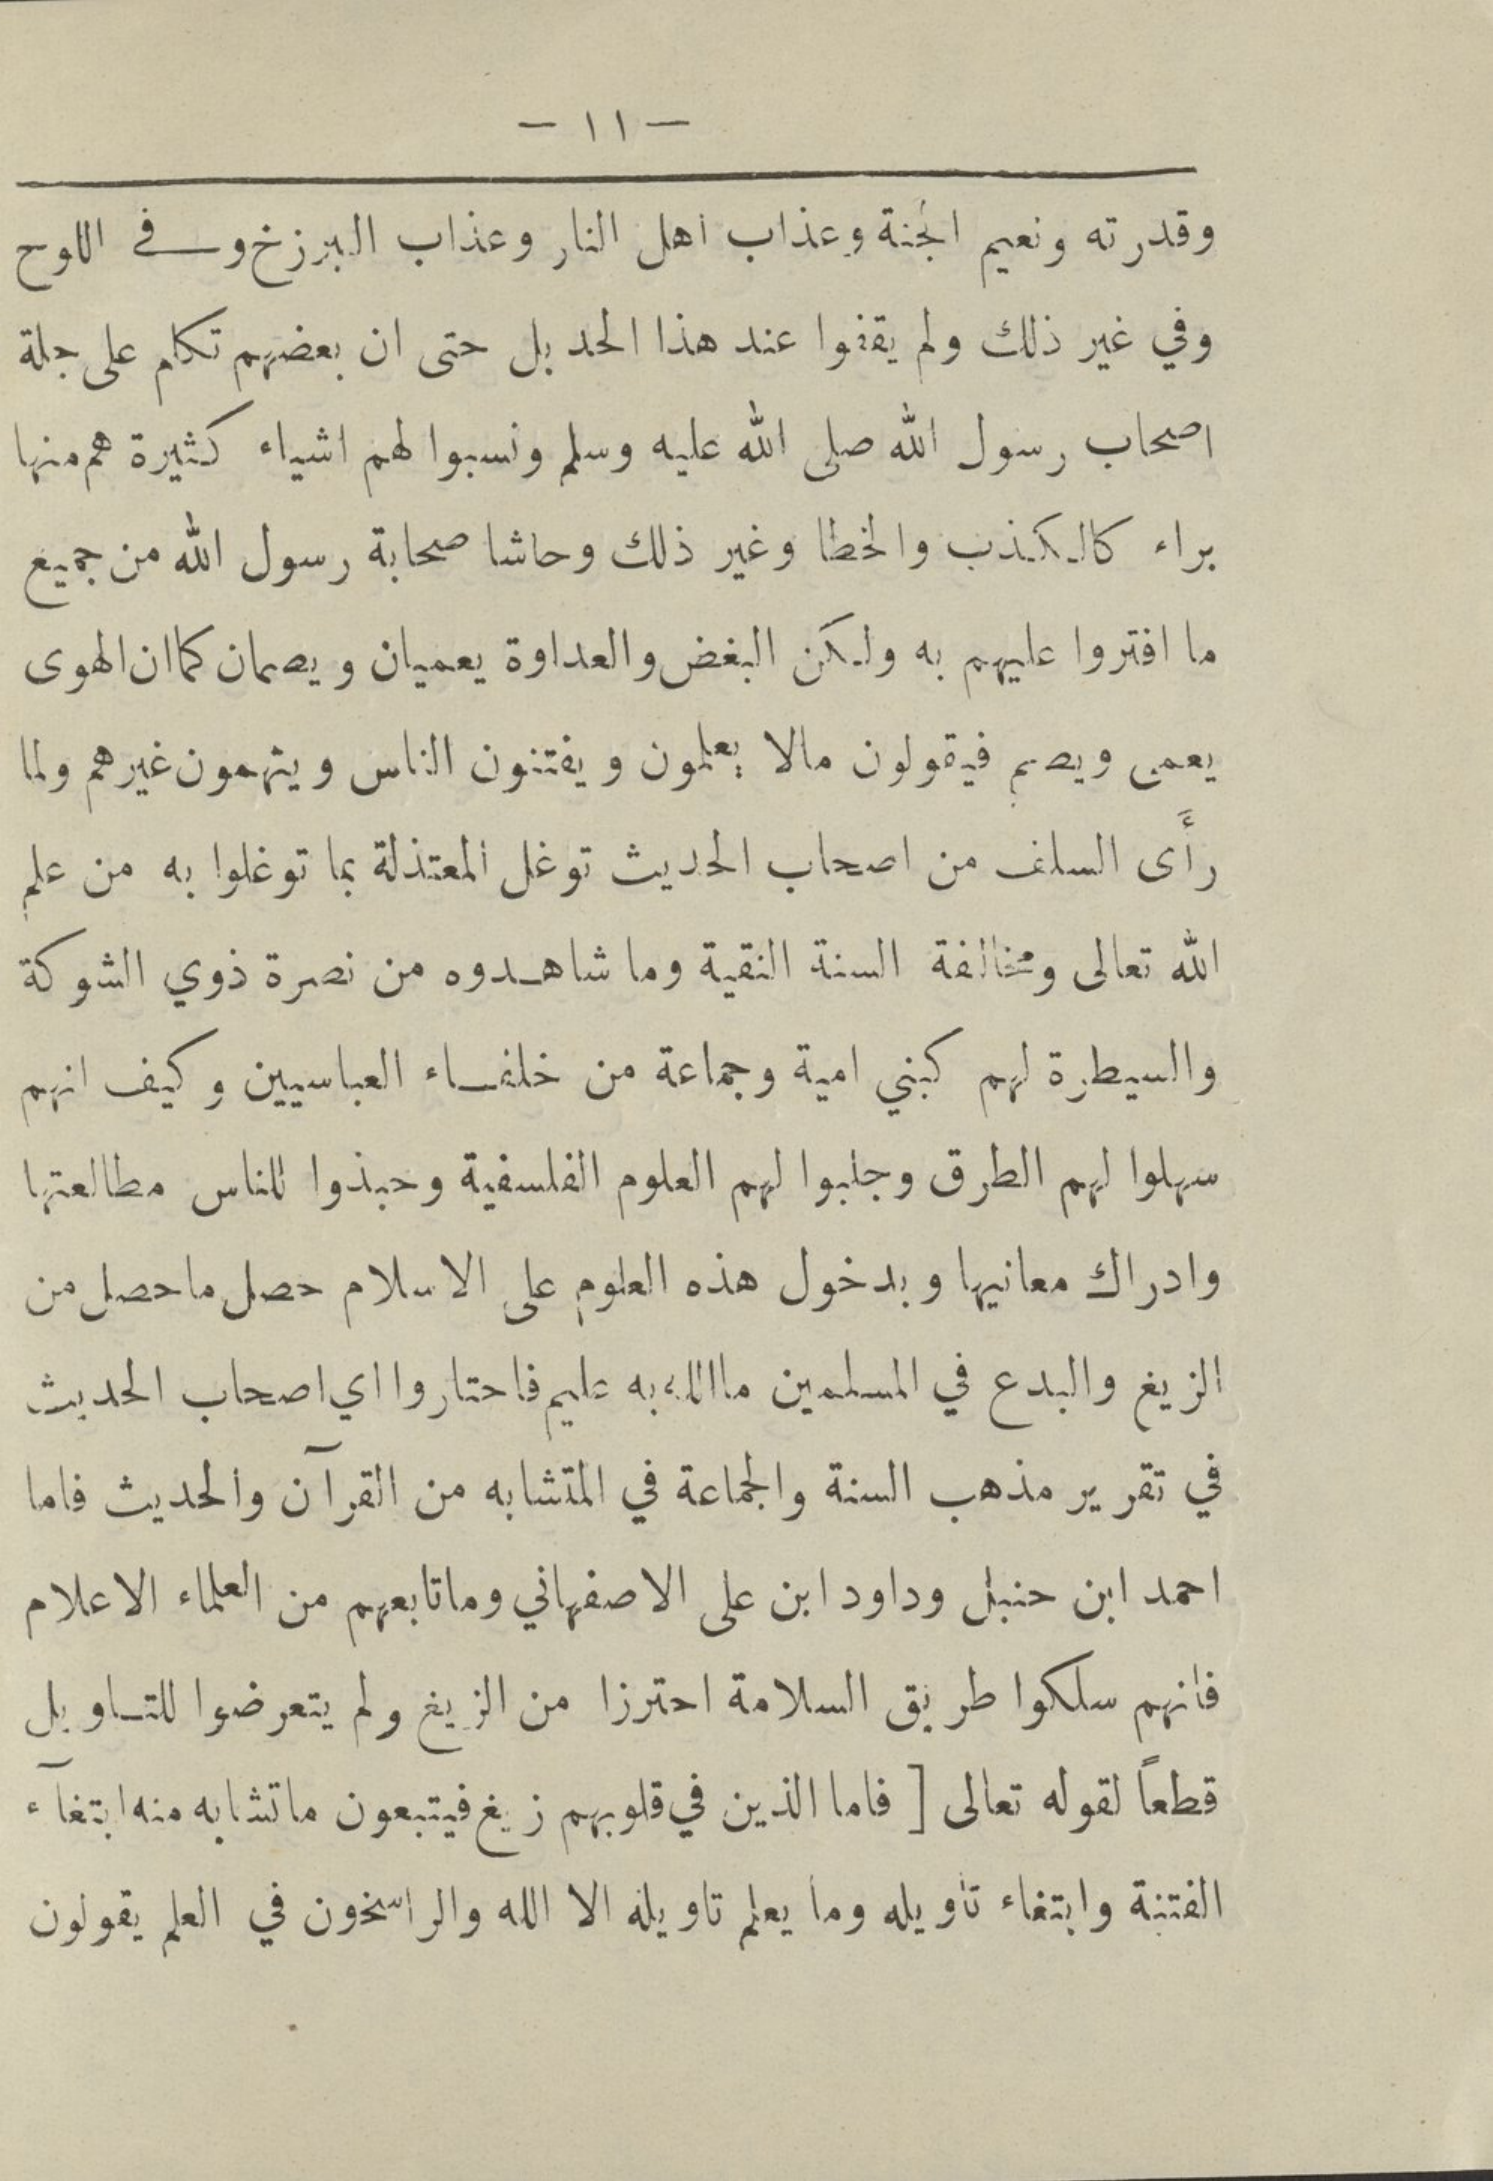 — ١١ —
وقدرته ونعيم الجنة وعذاب اهل النار وعذاب البرزخ وفي اللوح
وفي غير ذلك ولم يقفوا عند هذا الحد بل حتى ان بعضهم تكلم على جملة
اصحاب رسول الله صلى الله عليه وسلم ونسبوا لهم اشياء كثيرة هم منها
براء كالكذب والخطا وغير ذلك وحاشا صحابة رسول الله من جميع
ما افتروا عليهم به ولكن البغض والعداوة يعميان ويصمان كما ان الهوى
يعمى ويصم فيقولون مالا يعلمون ويفتنون الناس ويتهمون غيرهم ولما
رأى السلف من اصحاب الحديث توغل المعتذلة بما توغلوا به من علم
الله تعالى ومخالفة السنة النقية وما شاهدوه من نصرة ذوي الشوكة
والسيطرة لهم كبني امية وجماعة من خلفاء العباسيين وكيف انهم
سهلوا لهم الطرق وجلبوا لهم العلوم الفلسفية وحبذوا للناس مطالعتها
وادراك معانيها وبدخول هذه العلوم على الاسلام حصل ما حصل من
الزيغ والبدع في المسلمين ما الله به عليم فاحتاروا اي اصحاب الحديث
في تقرير مذهب السنة والجماعة في المتشابه من القرآن والحديث فاما
احمد ابن حنبل وداود ابن على الاصفهاني وماتابعهم من العلماء الاعلام
فانهم سلكوا طريق السلامة احترزا من الزيغ ولم يتعرضوا للتاويل
قطعاً لقوله تعالى [ فاما الذين في قلوبهم زيغ فيتبعون ماتشابه منه ابتغآء
الفتنة وابتغاء تأويله وما يعلم تاويله الا الله والراسخون في العلم يقولون